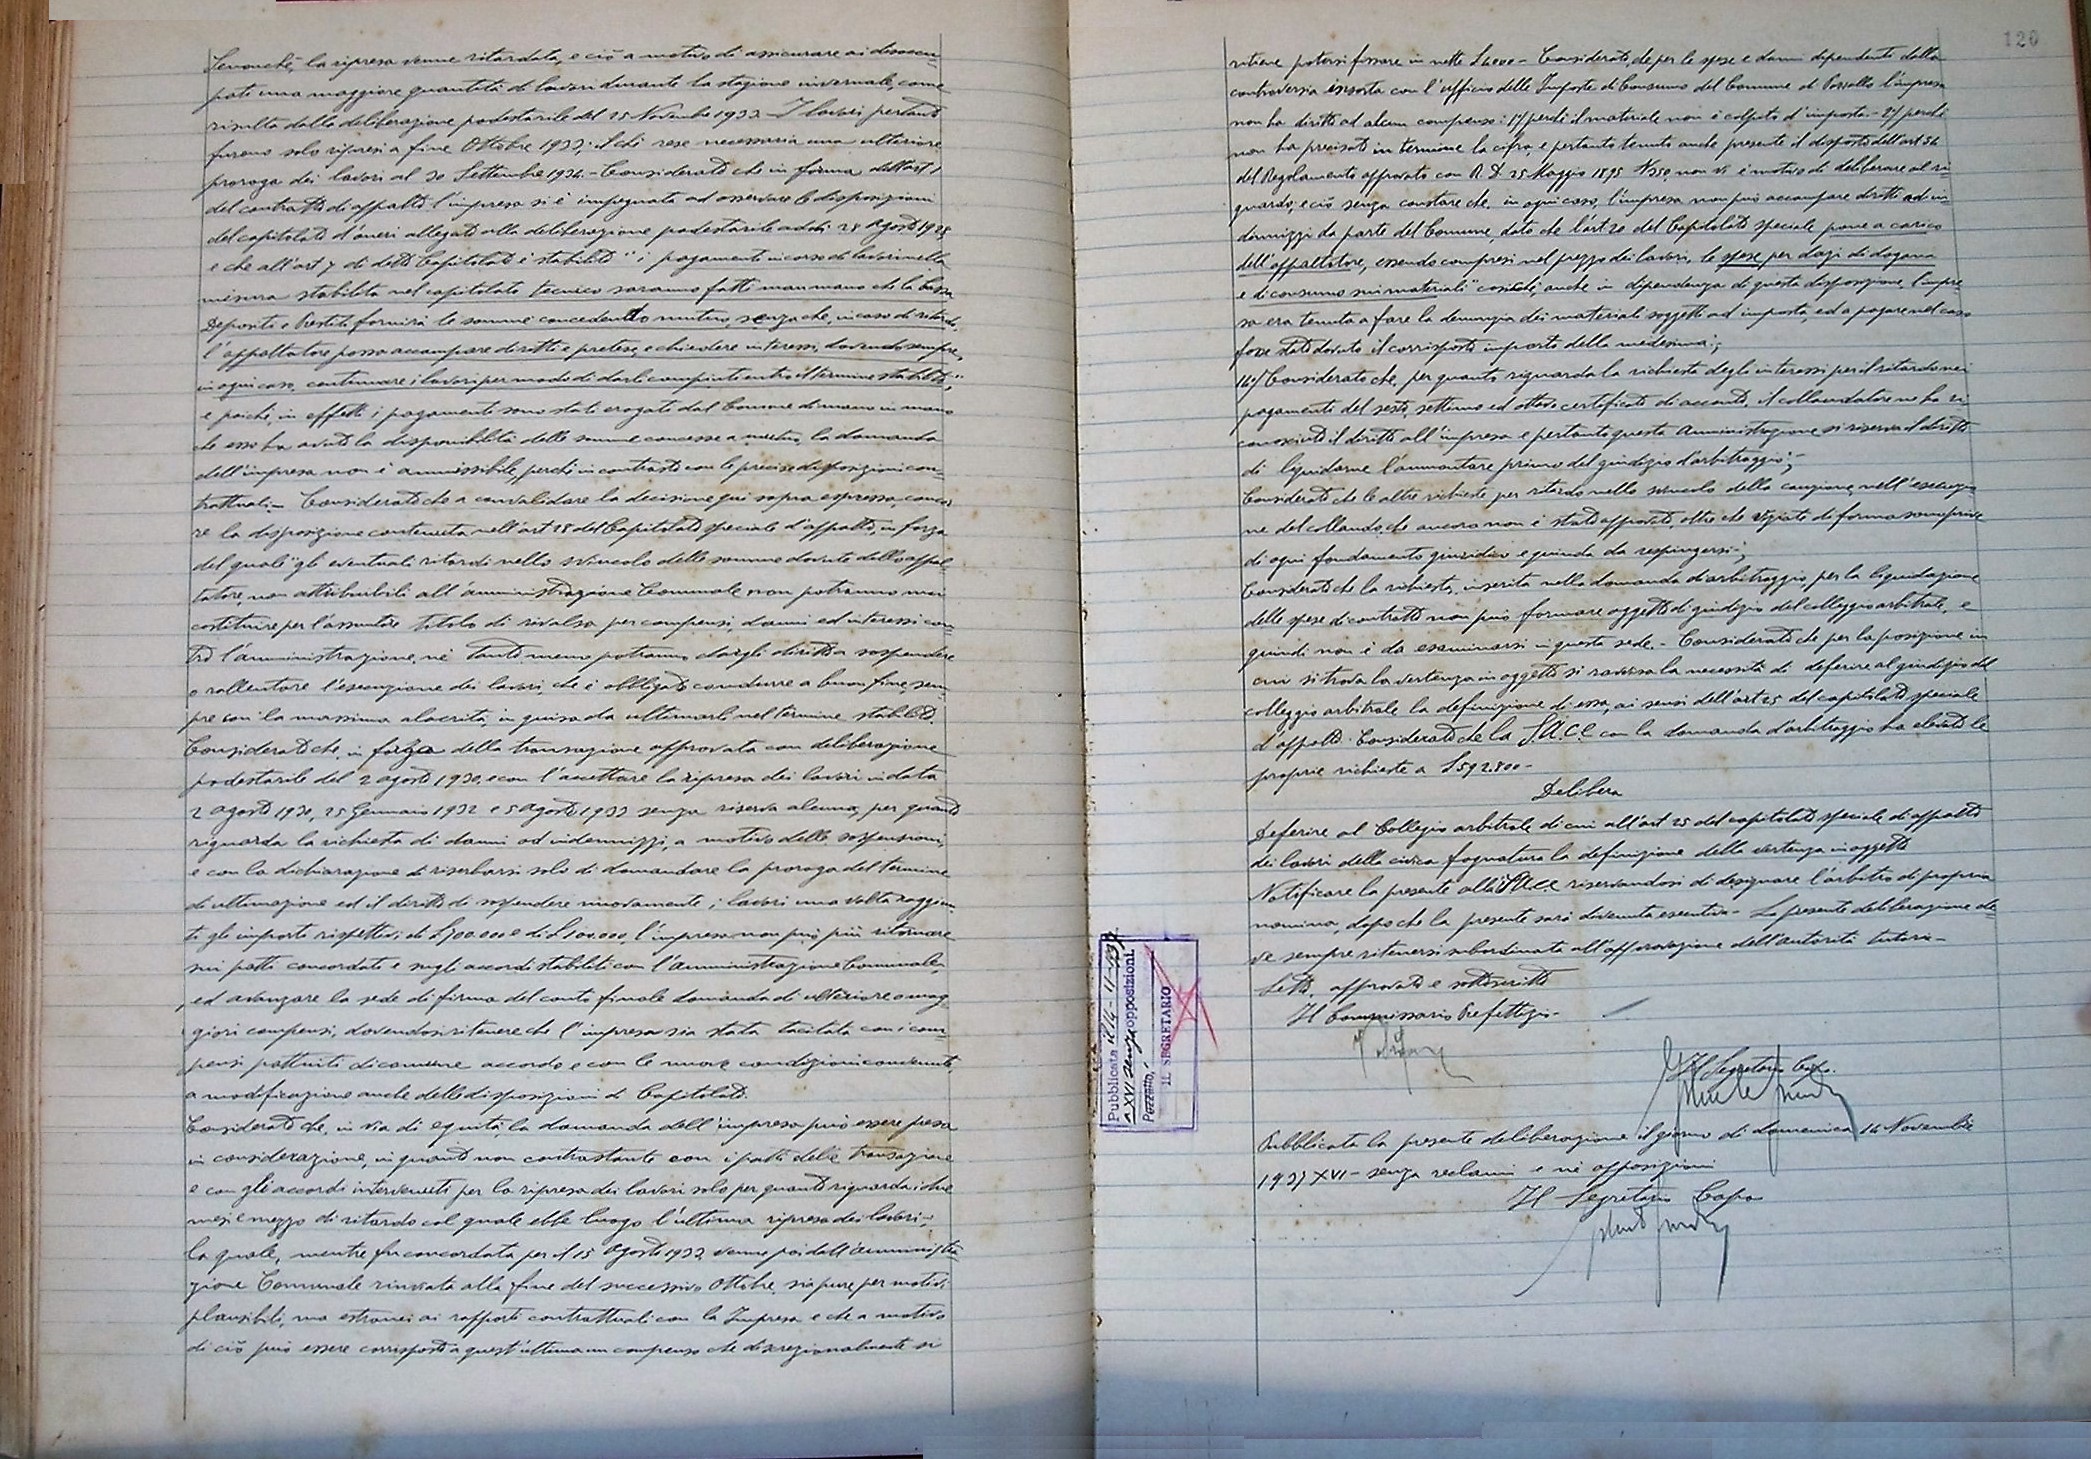 Senonchè, la ripresa venne ritardata, e ciò a motivo di assicurare ai disoccu-
pati una maggiore quantità di lavori durante la stagione invernale, come
risulta dalla deliberazione podestarile del 25 Novembre 1933. I lavori pertanto
furono solo ripresi a fine Ottobre 1933; il chè rese necessaria una ulteriore
proroga dei lavori al 30 Settembre 1934.- Considerato che in forma dell'art 1
del contratto di appalto l'impresa si è impegnata ad osservare le disposizioni
del capitolato d'oneri allegato alla deliberazione podestarile addì 28 Agosto 1928
e che all'art 7 di detto Capitolato è stabilito "i pagamenti in corso di lavori nella
misura stabilita nel capitolato tecnico saranno fatti man mano che la Cassa
Depositi e Prestiti fornirà le somme concedento mutuo, senza che, in caso di ritardo,
l'appaltatore possa accampare diritti e pretese, e chiedere interessi, dovendo sempre,
in ogni caso, continuare i lavori per modo di darli compiuti entro il termine stabilito,"
e poichè, in effetti i pagamenti sono stati erogati dal Comune di mano in mano
che esso ha avuto la disponibilità delle somme concesse a mutuo, la domanda
dell'impresa non è ammissibile, perchè in contrasto con le precise disposizioni con-
trattuali.- Considerato che a convalidare la decisione qui sopra espressa, concor
re la disposizione contenuta nell'art 28 del Capitolato speciale d'appalto, in forza
del quale "gli eventuali ritardi nello svincolo delle somme dovute dallo appal-
tatore, non attribuibili all'amministrazione Comunale non potranno mai
costituire per l'assuntore titolo di rivalsa per compensi, danni ed interessi con-
tro l'amministrazione, nè tanto meno potranno dargli diritto a sospendere
o rallentare l'esecuzione dei lavori, che è obbligato condurre a buon fine, sem-
pre con la massima alacrità, in guisa da ultimarli nel termine stabilito.
Considerato che, in forza della transazione approvata con deliberazione
podestarile del 2 agosto 1930, e con l'accettare la ripresa dei lavori in data
2 Agosto 1930, 25 Gennaio 1932 e 5 Agosto 1933 senza riserva alcuna, per quanto
riguarda la richiesta di danni ed indennizzi, a motivo delle sospensioni,
e con la dichiarazione di riserbarsi solo di domandare la proroga del termine
di ultimazione ed il diritto di sospendere nuovamente i lavori una volta raggiun-
ti gli importi rispettivi di L 700.000 e di L 500.000, l'impresa non può più ritornare
sui patti concordati e sugli accordi stabiliti con l'Amministrazione Comunale,
ed avanzare in sede di firma del conto finale domanda di ulteriore o mag
giori compensi, dovendosi ritenere che l'impresa sia stata tacitata con i com-
pensi pattuiti di comune accordo e con le nuove condizioni convenute,
a modificazione anche delle disposizioni di Capitolato.
Considerato che, in via di equità, la domanda dell'impresa può essere presa
in considerazione, in quanto non contrastante con i patti della transazione
e con gli accordi intervenuti per la ripresa dei lavori solo per quanto riguarda i due
mesi e mezzo di ritardo col quale ebbe luogo l'ultima ripresa dei lavori;-
la quale, mentre fu concordata per il 15 Agosto 1933, venne poi dall'amministra
zione Comunale rinviata alla fine del successivo Ottobre, sia pure per motivi
plausibili, ma estranei ai rapporti contrattuali con la Impresa e che a motivo
di ciò può essere corrisposto a quest'ultima un compenso che discrezionalmente si
120
ritiene potersi fissare in nette L 4000- Considerato, che per le spese e danni dipendenti dalla
controversia insorta con l'ufficio delle Imposte di Consumo del Comune di l'impresa
non ha diritto ad alcun compenso: 1°) perchè il materiale non è colpito d'imposta - 2°) perchè
non ha precisato in termine la cifra, e pertanto tenuto anche presente il disposto dell'art 54
del Regolamento approvato con R. D. 25 Maggio 1895 N 350, non vi è motivo di deliberare al ri-
guardo; e ciò senza constare che, in ogni caso, l'impresa non può accampare diritti ad in-
dennizzi da parte del Comune, dato che l'art 20 del Capitolato speciale pone a carico
dell'appaltatore, essendo compresi nel prezzo dei lavori, le spese per dazi di dogana
e di consumo sui materiali" cosichè, anche in dipendenza di questa disposizione, l'impre-
sa era tenuta a fare la denunzia dei materiali soggetti ad imposta, ed a pagare nel caso
fosse stato dovuto il corrisposto importo della medesima;-
14°) Considerato che, per quanto riguarda la richiesta degli interessi per il ritardo nei
pagamenti del sesto, settimo ed ottavo certificato di acconto, il collaudatore ne ha ri
conosciuto il diritto all'impresa e pertanto questa Amministrazione si riserva il diritto
di liquidarne l'ammontare prima del giudizio d'arbitraggio;-
Considerato che le altre richieste per ritardo nello svincolo della cauzione, nell'esecuzio
ne del collaudo, che ancora non è stato approvato, oltre che viziate di forma sono prive
di ogni fondamento giuridico e quindi da respingersi-;
Considerato che la richiesta, inserita nella domanda di arbitraggio, per la liquidazione
delle spese di contratto non può formare oggetto di giudizio del collegio arbitrale, e
quindi non è da esaminarsi in questa sede.- Considerato che per la posizione in
cui si trova la vertenza in oggetto si ravvisa la necessità di deferire al giudizio del
collegio arbitrale la definizione di essa, ai sensi dell'art 25 del capitolato speciale
d'appalto. Considerato che la S.A.C.E. con la domanda d'arbitraggio ha elevato le
proprie richieste a L 592.800-
Delibera
Deferire al Collegio arbitrale di cui all'art 25 del capitolato speciale di appalto
dei lavori della civica fognatura la definizione della vertenza in oggetto
Notificare la presente alla riservandosi di designare l'arbitro di propria
nomina, dopo che la presente sarà divenuta esecutiva- La presente deliberazione de-
ve sempre ritenersi subordinata all'approvazione dell'autorità tutoria-
Letto, approvato e sottoscritto
Il Commissario Prefettizio-
Il Segretario Capo.
Pubblicata il 14-11-1937
a XVI senza opposizioni.
IL SEGRETARIO
Pubblicata la presente deliberazione il giorno di domenica 14 Novembre
1937 XVI- senza reclami e nè opposizioni
Il Segretario Capo